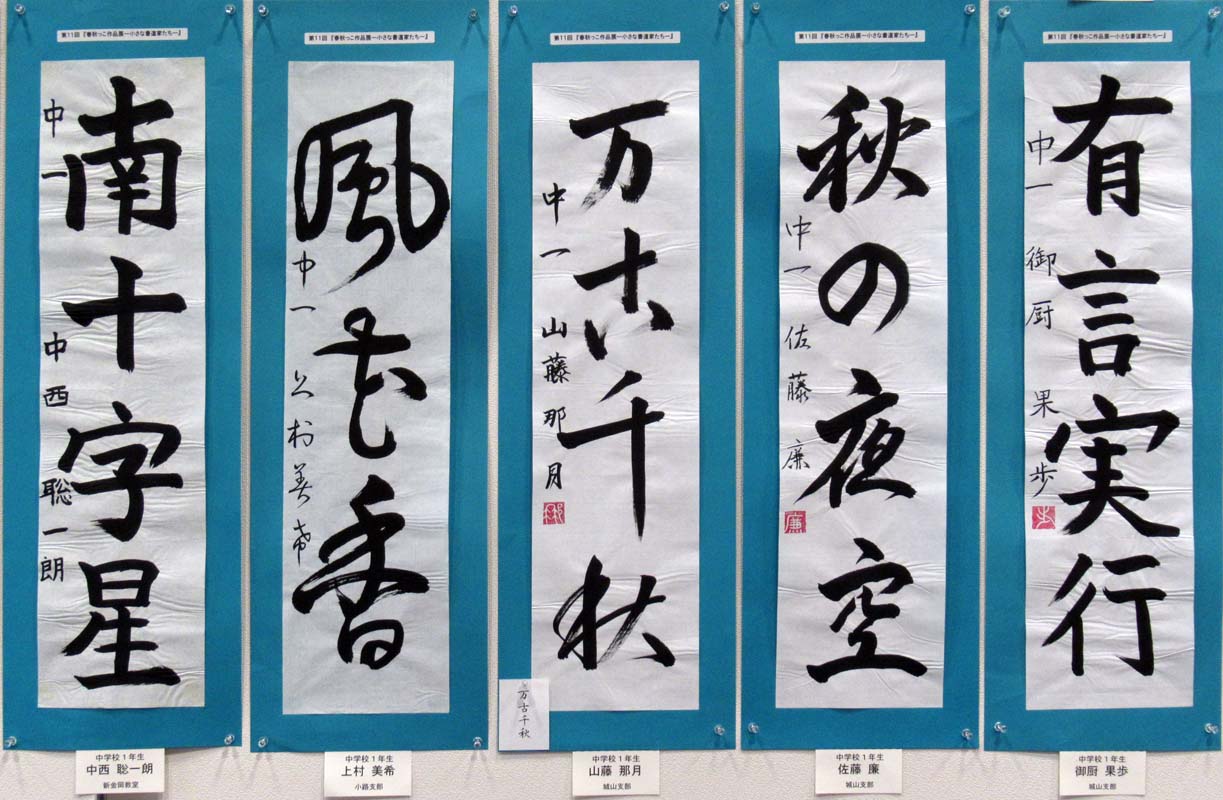 第11回 『春秋っこ作品展ー小さな書道家たちー』
南十字星
中一 中西 聡一朗
中学校1年生
中西 聡一朗
新金岡教室
第11回 『春秋っこ作品展ー小さな書道家たちー』
風花香
中一 上村美希
中学校1年生
上村 美希
小路支部
第11回 『春秋っこ作品展ー小さな書道家たちー』
万古千秋
中一 山藤那月
万古千秋
中学校1年生
山藤 那月
城山支部
第11回 『春秋っこ作品展ー小さな書道家たちー』
秋の夜空
中一 佐藤 廉
廉
中学校1年生
佐藤 廉
城山支部
第11回 『春秋っこ作品展ー小さな書道家たちー』
有言実行
中一 御厨 果歩
歩
中学校1年生
御厨 果歩
城山支部